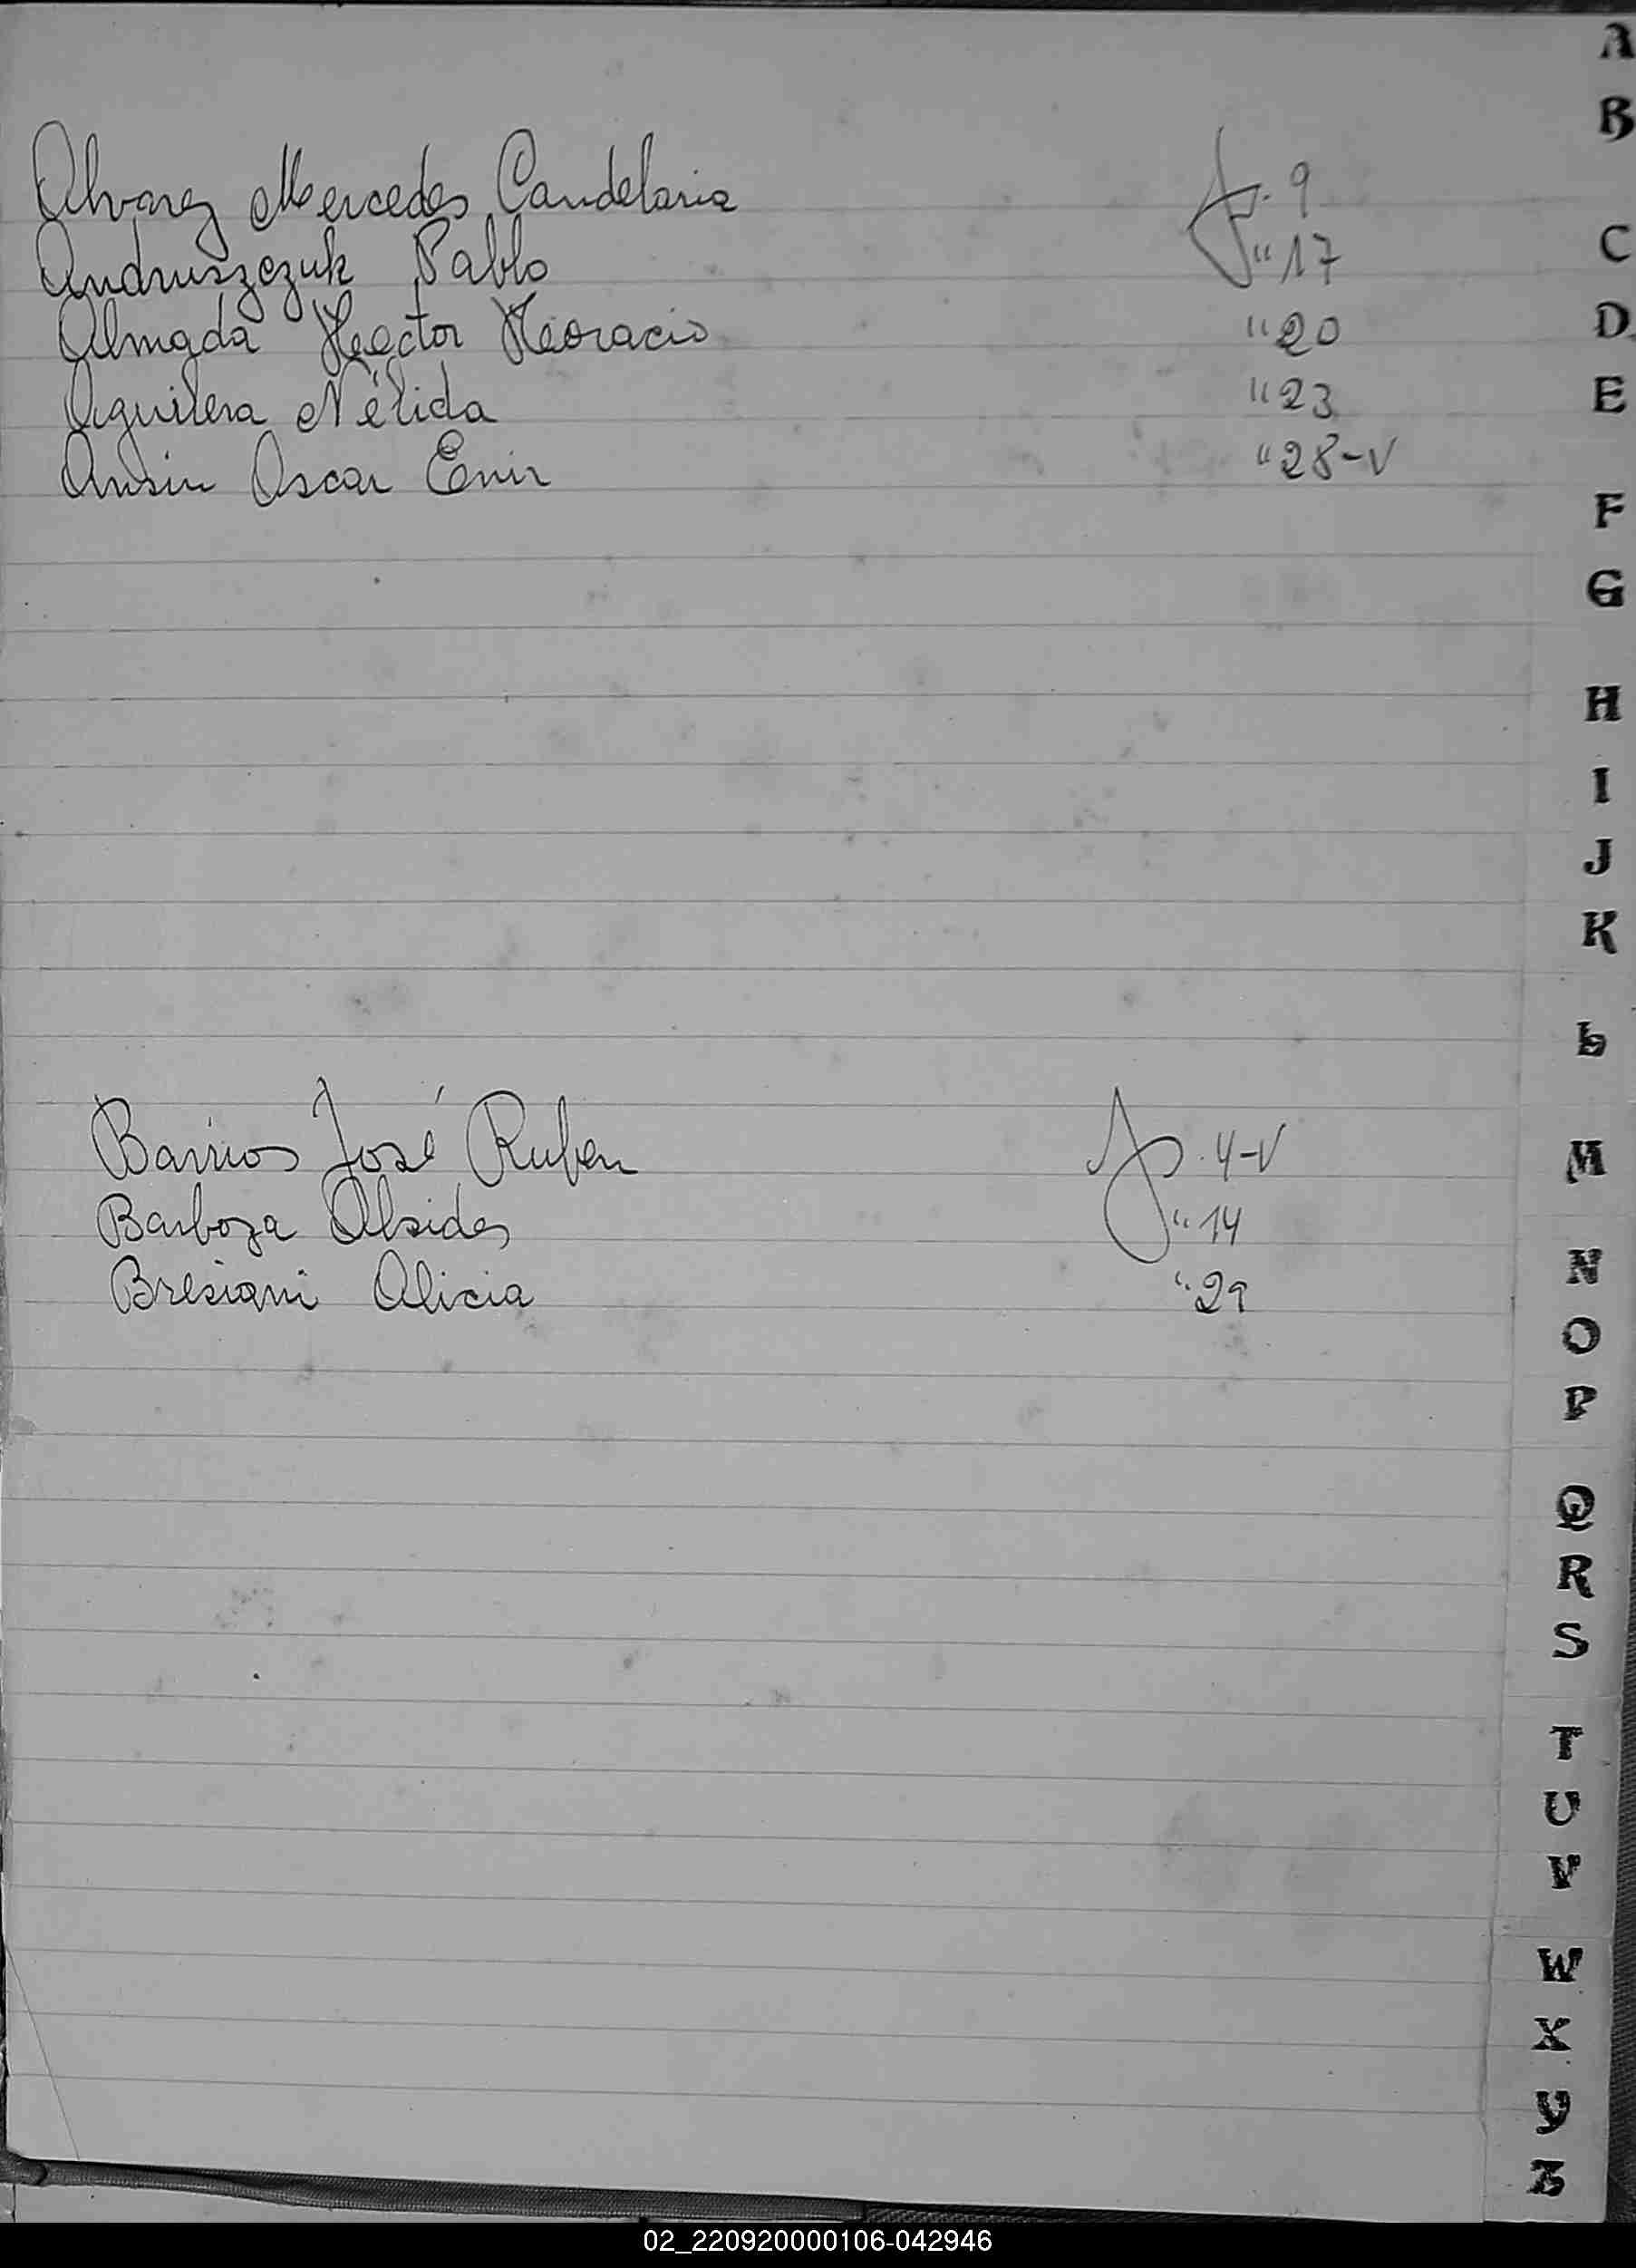 Alvarez Mercedes Candelaria fs. 9
Andruszezuk Pablo " 17
Almada Hector Horacio " 20
Aguilera Nélida " 23
Ansin Oscar Emir " 28-V
Barrios José Ruben fs. 4-V
Barboza Alsides " 14
Bresiani Alicia " 29
A
B
C
D
E
F
G
H
I
J
K
L
M
N
O
P
Q
R
S
T
U
V
W
X
Y
Z
02_220920000106-042946